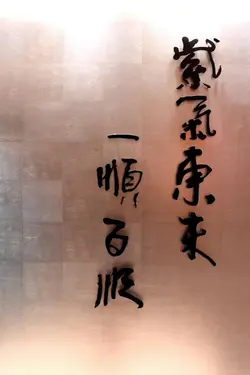 紫氣東来
一順百順